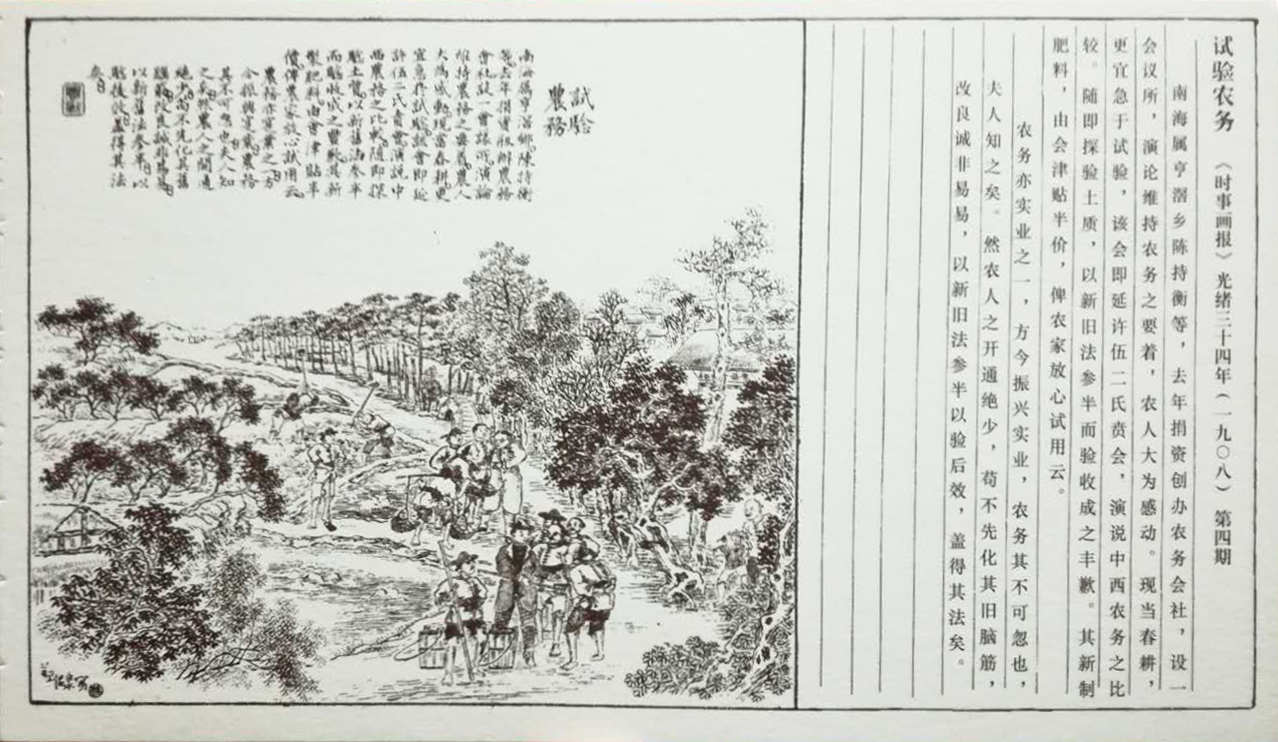 试验农务 《时事画报》光绪三十四年(一九〇八)第四期
南海属亨滘乡陈持衡等，去年捐资创办农务会社，设一
会议所，演论维持农务之要着，农人大为感动。现当春耕，
更宜急于试验，该会即延许伍二氏贲会，演说中西农务之比
较。随即探验土质，以新旧法参半而验收成之丰歉。其新制
肥料，由会津贴半价，俾农家放心试用云。
农务亦实业之一，方今振兴实业，农务其不可忽也，
夫人知之矣。然农人之开通绝少，苟不先化其旧脑筋，
改良诚非易易，以新旧法参半以验后效，盖得其法矣。
試驗
農務
南海属亨滘鄉陳持衡
等去年捐資創辦農務
會社設一會議所演論
維持農務之要着農人
大為感動現當春耕更
宜急於試驗該會即延
許伍二氏賁會演說中
西農務之比較随即探
驗土質以新舊法參半
而驗收成之豐歉其新
製肥料由會津貼半
價俾農家放心試用云
農務亦實業之一方
今振興實業農務
其不可忽也夫人知
之矣然農人之開通
絕少苟不先化其舊
腦筋改良誠非易易
以新舊法參半以
驗後效蓋得其法
矣